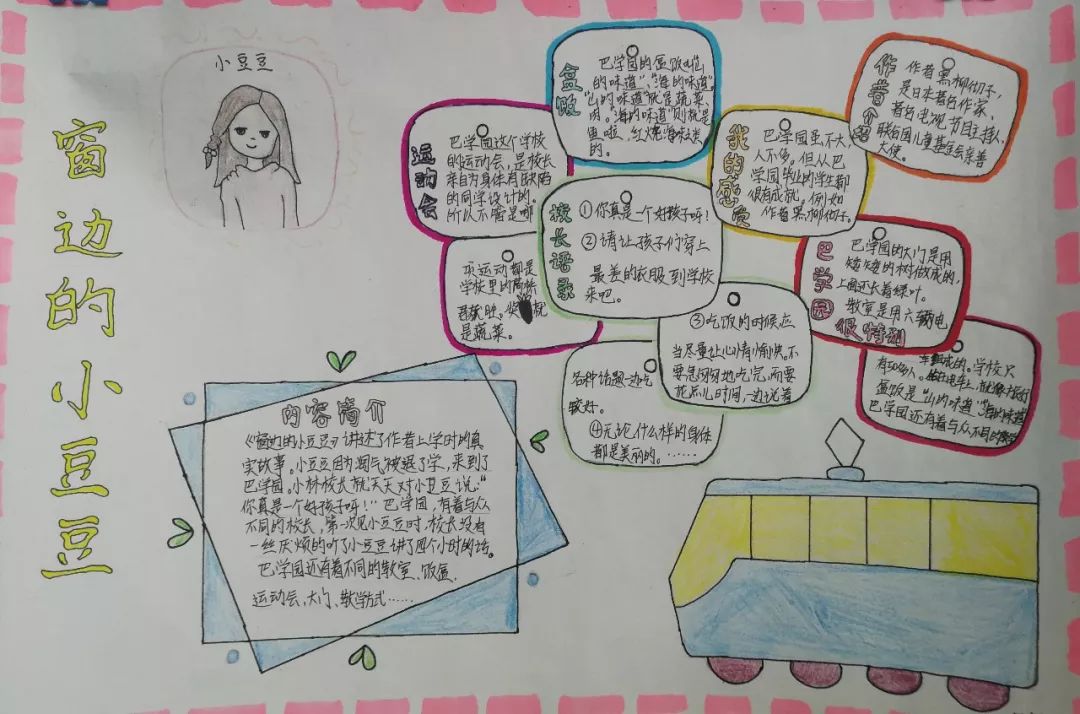 窗边的小豆豆
小豆豆
内容简介
《窗边的小豆豆》讲述了作者上学时的真
实故事。小豆豆因淘气被退了学，来到了
巴学园。小林校长就天天对小豆豆说：“
你真是一个好孩子呀！”巴学园，有着与众
不同的校长，第一次见小豆豆时，校长没有
一丝厌烦的听了小豆豆讲了四个小时的话。
巴学园还有着不同的教室、饭盒、
运动会、大门、教学方式……
运动会
巴学园这个学校
的运动会，是校长
亲自为身体有缺陷
的同学设计的。
所以不管是哪
项运动都是
学校里的高桥
君获胜，奖
就
是蔬菜。
盒饭
巴学园的盒饭啦
的味道”、“海的味道”。
“山的味道”就是蔬菜、
肉。“海的味道”则就是
鱼啦、红烧海味类
的。
校长语录
①你真是一个好孩子呀！
②请让孩子们穿上
最差的衣服到学校
来吧。
③吃饭的时候应
当尽量让心情愉快。不
要急匆匆地吃完，而要
花点儿时间一边说着
各种话题一边吃
较好。
④无论什么样的身体
都是美丽的。……
我的感受
巴学园虽不大，
人不多。但从巴
学园毕业的学生都
很有成就。例如
作者黑柳彻子。
作者介绍
作者黑柳彻子，
是日本著名作家、
著名电视节目主持人、
联合国儿童基金会亲善
大使。
巴学园很特别
巴学园的大门是用
矮矮的树做成的，
上面还长着绿叶。
教室是用六辆电
车组成的。学校只
有50多人。坐在电车上，就像才旅行
盒饭是“山的味道”“海的味道”
巴学园还有着与众不同的教学